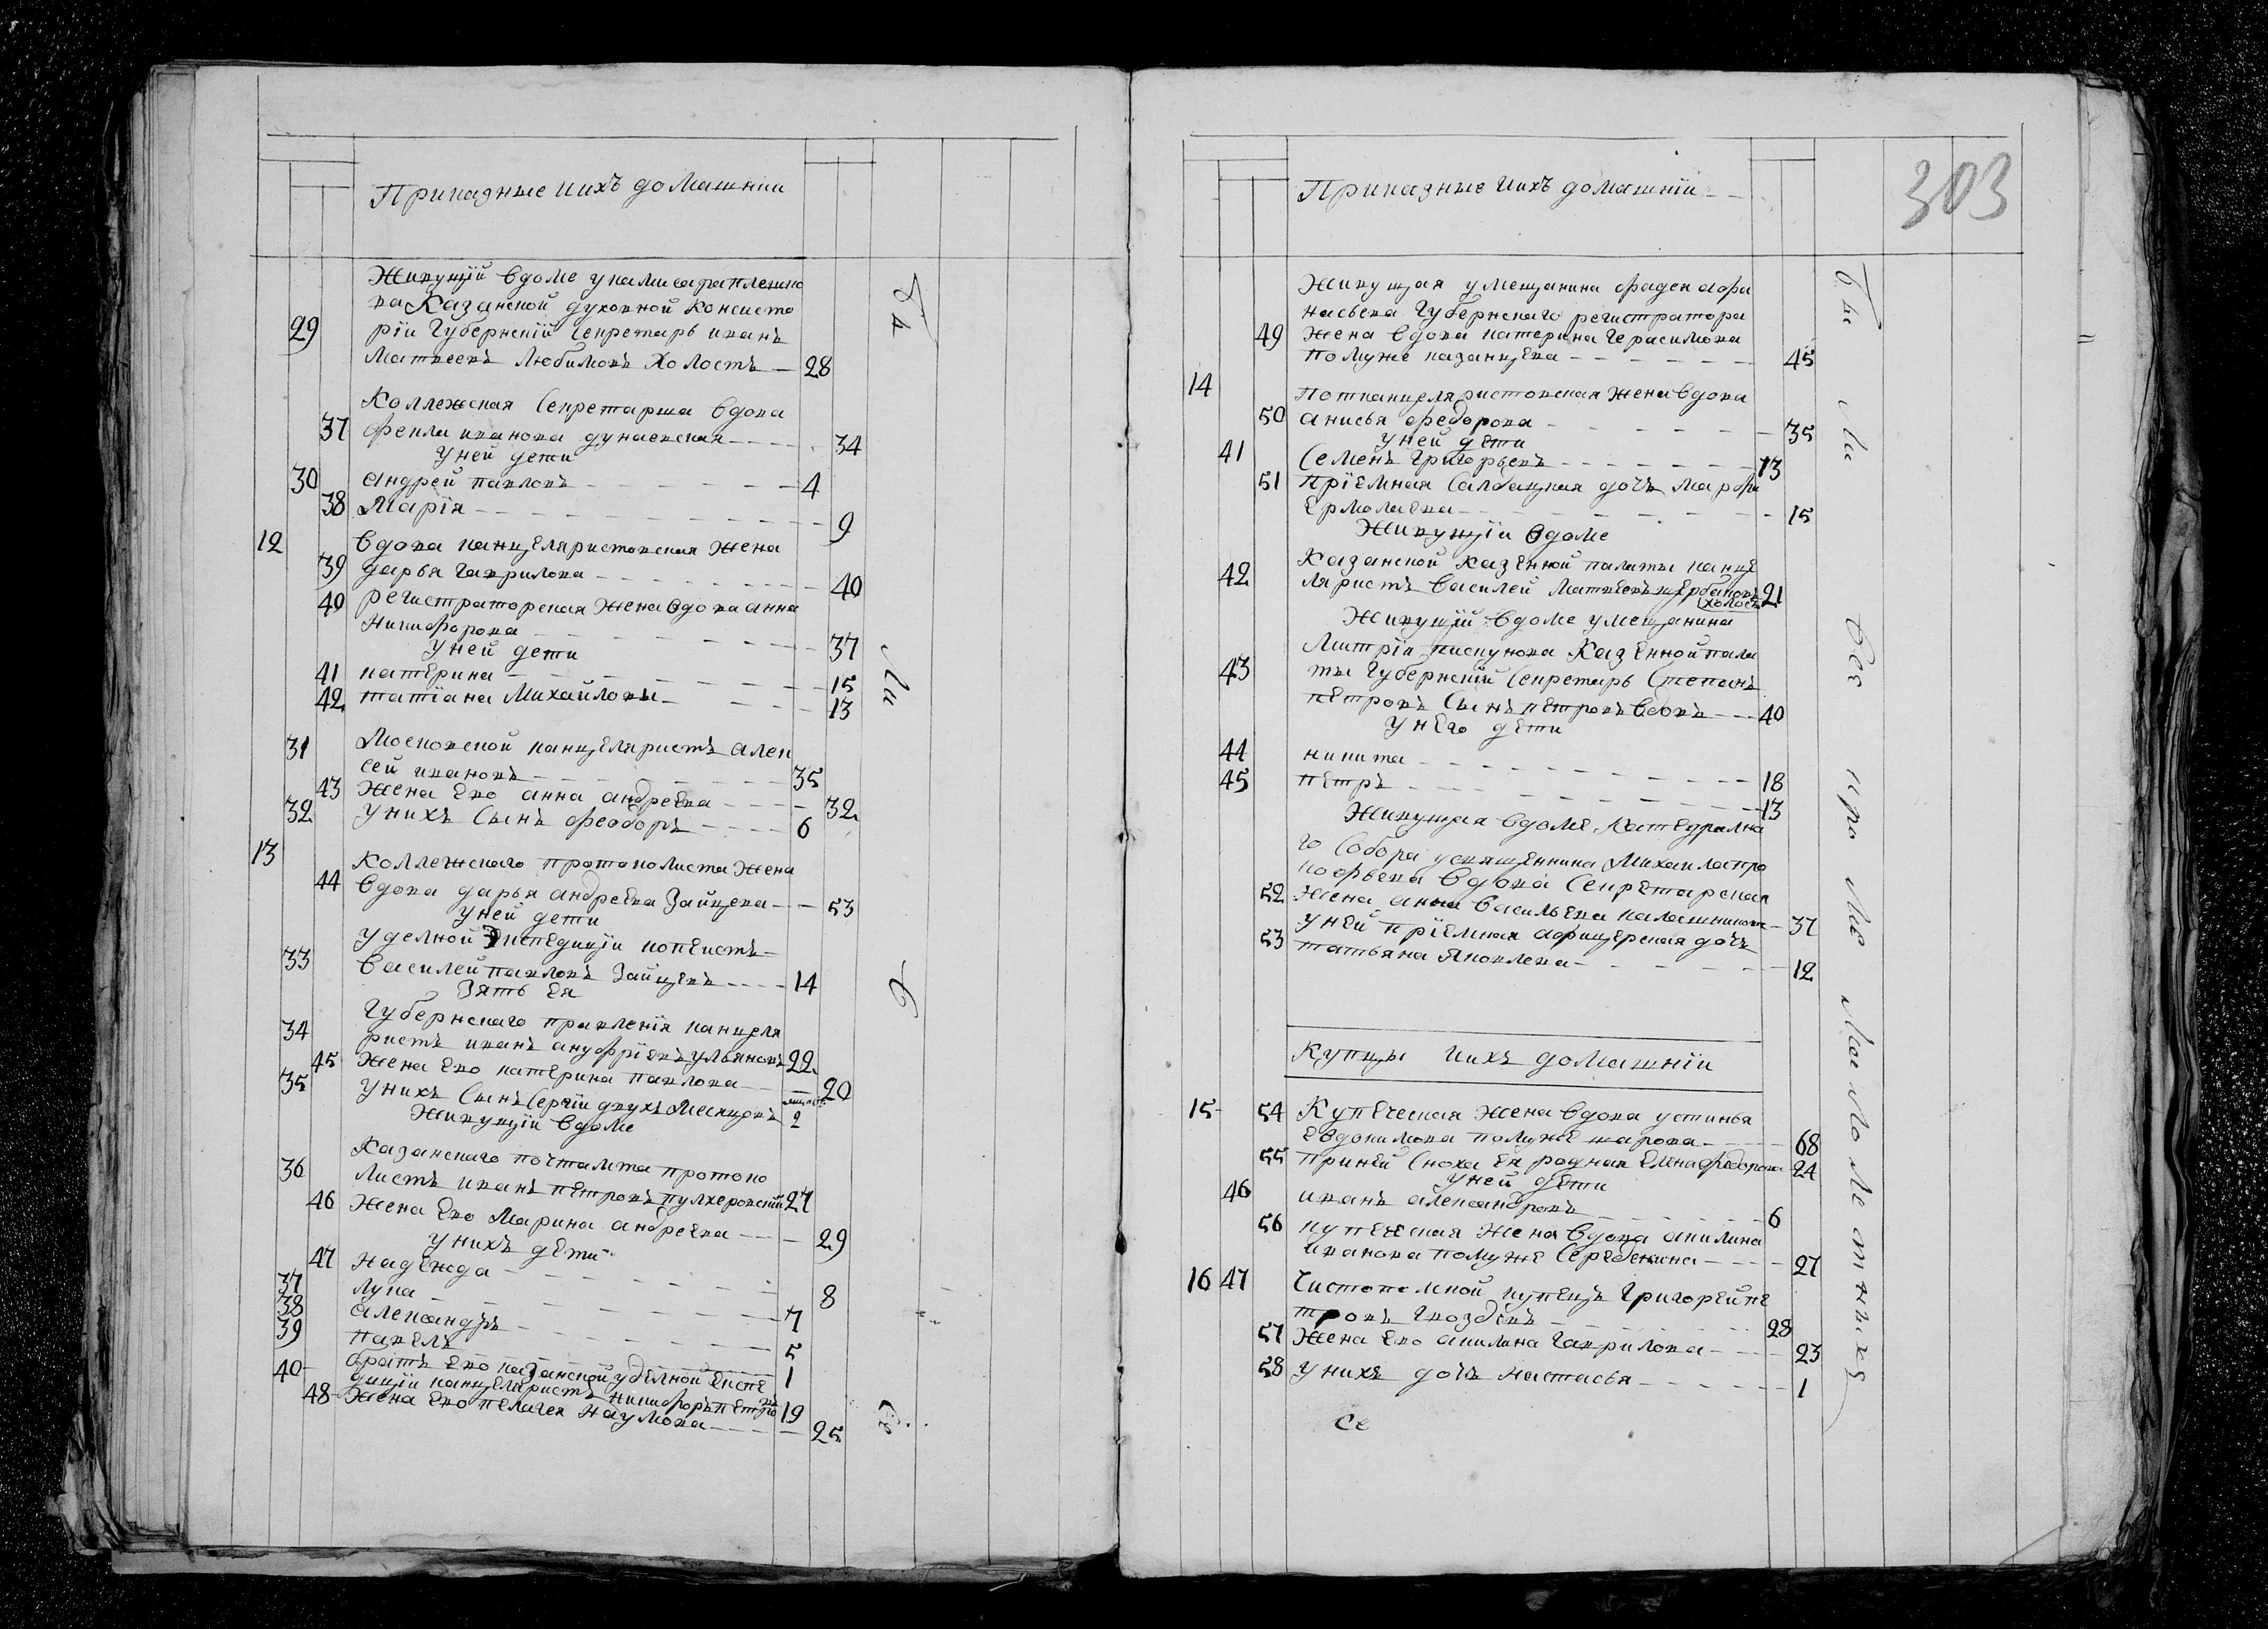 Приказные иихъ домашнии
Живущій вдоме укамисара плешко
ва Казанской духовной Консисто
29 ріи Губернскій Секретарь иванъ
Матвеевъ Любимовъ Холостъ — 28
Коллежская Секретарша вдова
37 фекла иванова дунаевская — 34
Уней дети
30 андрей павловъ — 4
38 Марія — 9
12 Вдова канцеляристовская Жена
39 дарья гаврилова — 40
40 регистраторская Жена вдова анна
Никифорова — 37
Уней дети
41 катерина — 15
42 татіана Михайловы — 13
31 Московской канцеляристъ алек
сей ивановъ — 35
43 Жена Ево анна андреева — 32
32 Унихъ Сынъ феодоръ — 6
13 Коллежскаго протоколиста Жена
44 вдова дарья андреева Зайцева — 53
Уней дети
Уделной Экспедиціи копеистъ —
33 Василей павловъ Зайцевъ — 14
Зять Ея
34 Губернскаго правленія канцеля
ристъ иванъ ануфріевъ ульяновъ 22
45 Жена Ево катерина павлова — 20
35 Унихъ Сынъ Сергій двухъ Месяцовъ 2
Живущій вдоме
Казанскаго почтамта протоко
36 листъ иванъ петровъ пулхеровскій 27
46 Жена Ево Марина андреева — 29
Унихъ дети
47 Надежда — 8
37 лука — 7
38 александръ — 5
39 павелъ — 1
братъ Ево казанской уделной Експе
40 диціи канцеляристъ никифоръ петро
въ 19
48 Жена Ево пелагея Наумова — 25
Бы
ли
в
Приказные иихъ домашніи
303
Живущая умещанина фадея афа
насьева Губернскаго регистратора
49 Жена вдова катерина Герасимова
помуже казанцева — 45
14 Потканцеляристовская Жена вдова
50 анисья федорова — 35
Уней дети
41 Семенъ Григорьевъ — 13
51 Пріемная Салдацкая дочь марфа
Ермолаева — 15
Живущіи вдоме
Казанской Казенной палаты канце
42 ляристъ Василей Матвеевъ щербаковъ 21
холостъ
Живущій вдоме умещанина
Митрія пискунова Казенной пала
43 ты Губернскій Секретарь Степанъ
петровъ Сынъ петровъ вдовъ — 40
Унего дети
44 никита — 18
45 петръ — 13
Живущая вдоме, Катедрална
го Собора усвященника Михаила про
кофьева вдова Секретарская
52 Жена анна Васильева калашникова — 37
Уней пріемная афицерская дочь
53 татьяна Яковлева — 12
Купцы иихъ домашніи
15 54 Купеческая Жена вдова устинья
Евдокимова помуже шарова — 68
55 приней Сноха Ея родная Елена федорова 24
Уней дети
46 иванъ александровъ — 6
56 купеческая Жена вдова акилина
иванова помуже Серебенина — 27
16 47 Чистополной купецъ Григорей пе
тровъ Гвоздевъ — 28
57 Жена Ево акилина Гаврилова — 23
58 Унихъ дочь настасья — 1
Се
Бы ли все при